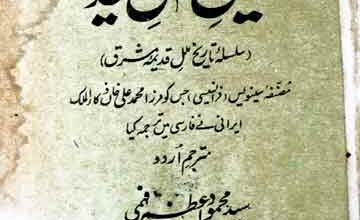 (سلسلۂ تاریخ ملل قدیمۂ مشرق)
مصنفہ سینوبس (فرانسیسی) جس کو مرزا محمد علی خان ذکاء الملک
ایرانی نے فارسی میں ترجمہ کیا
مترجم اردو
سید محمود اعظم فہمی